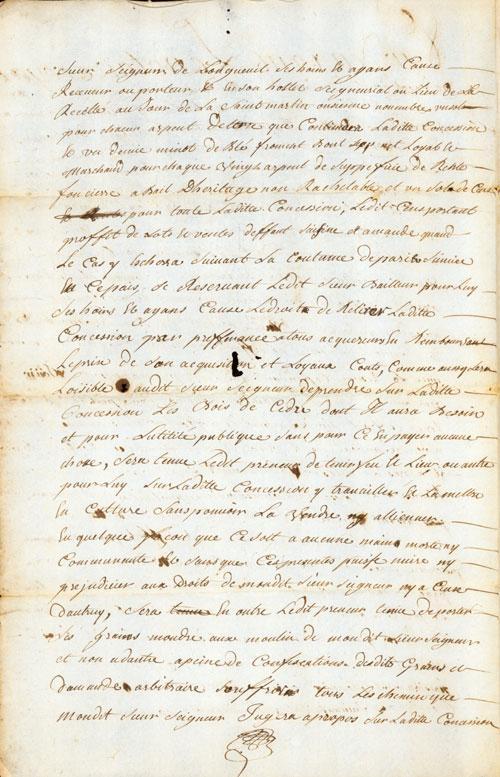 Sieur Seigneur de Longueuil ses hoirs et ayans Cause
Receveur ou porteur et en son hostel Seigneurial ou Lieu de La
Recette au Jour de La Saint martin onsieme novembre
pour chacun arpent de terre que Contiendra Laditte Concession
et un demie minot de blé froment bon net Loyable
Marchand pour chaque Vingt arpent de Superficie de Rente
fonciere a Bail Dheritage non Rachetable et un Sol de Cens
pour toute Laditte Concession, Ledit Cens portant
proffit de Lots et ventes deffaut Saisine et amande quand
Le cas y Echera Suivant la Coutume de paris Suivie
En Ce païs, Se Reservant Ledit Sieur Bailleur pour Luy
Ses hoirs et ayans Cause Le droit de Retirer Laditte
Concession par preffmance a tous acquereurs En Rembour sant
Leprix de Son acquisition et Loyaux Couts, Comme aussy Sera
Loisible audit Sieur Seigneur de prendre Sur Laditte
Concession Les Bois de Cedre dont Il aura Besoin
et pour Lutilité publique Sans pour Ce En payer aucune
chose, Sera tenue Ledit preneur de tenir feu et Lieu ou autre
pour Luy Sur Laditte Concession y travailler et La mettre
En Culture Sans pouvoir La Vendre ny alliener
En quelque façon que Ce Soit a aucune mains morte ny
Communauté et Sans que Ces presentes puisse nuire ny
prejudicier aux Droits de mondit Sieur Seigneur ny a Ceux
Dautruy, Sera En outre Ledit preneur tenue de porter
Ses Grains moudre aux moulin de mondit Sieur Seigneur
et non adautre apeine de Confiscations desdits Grains et
Damande arbitraire Souffrira tous Les chemins que
Mondit Sieur Seigneur Jugera apropos Sur Laditte Concession